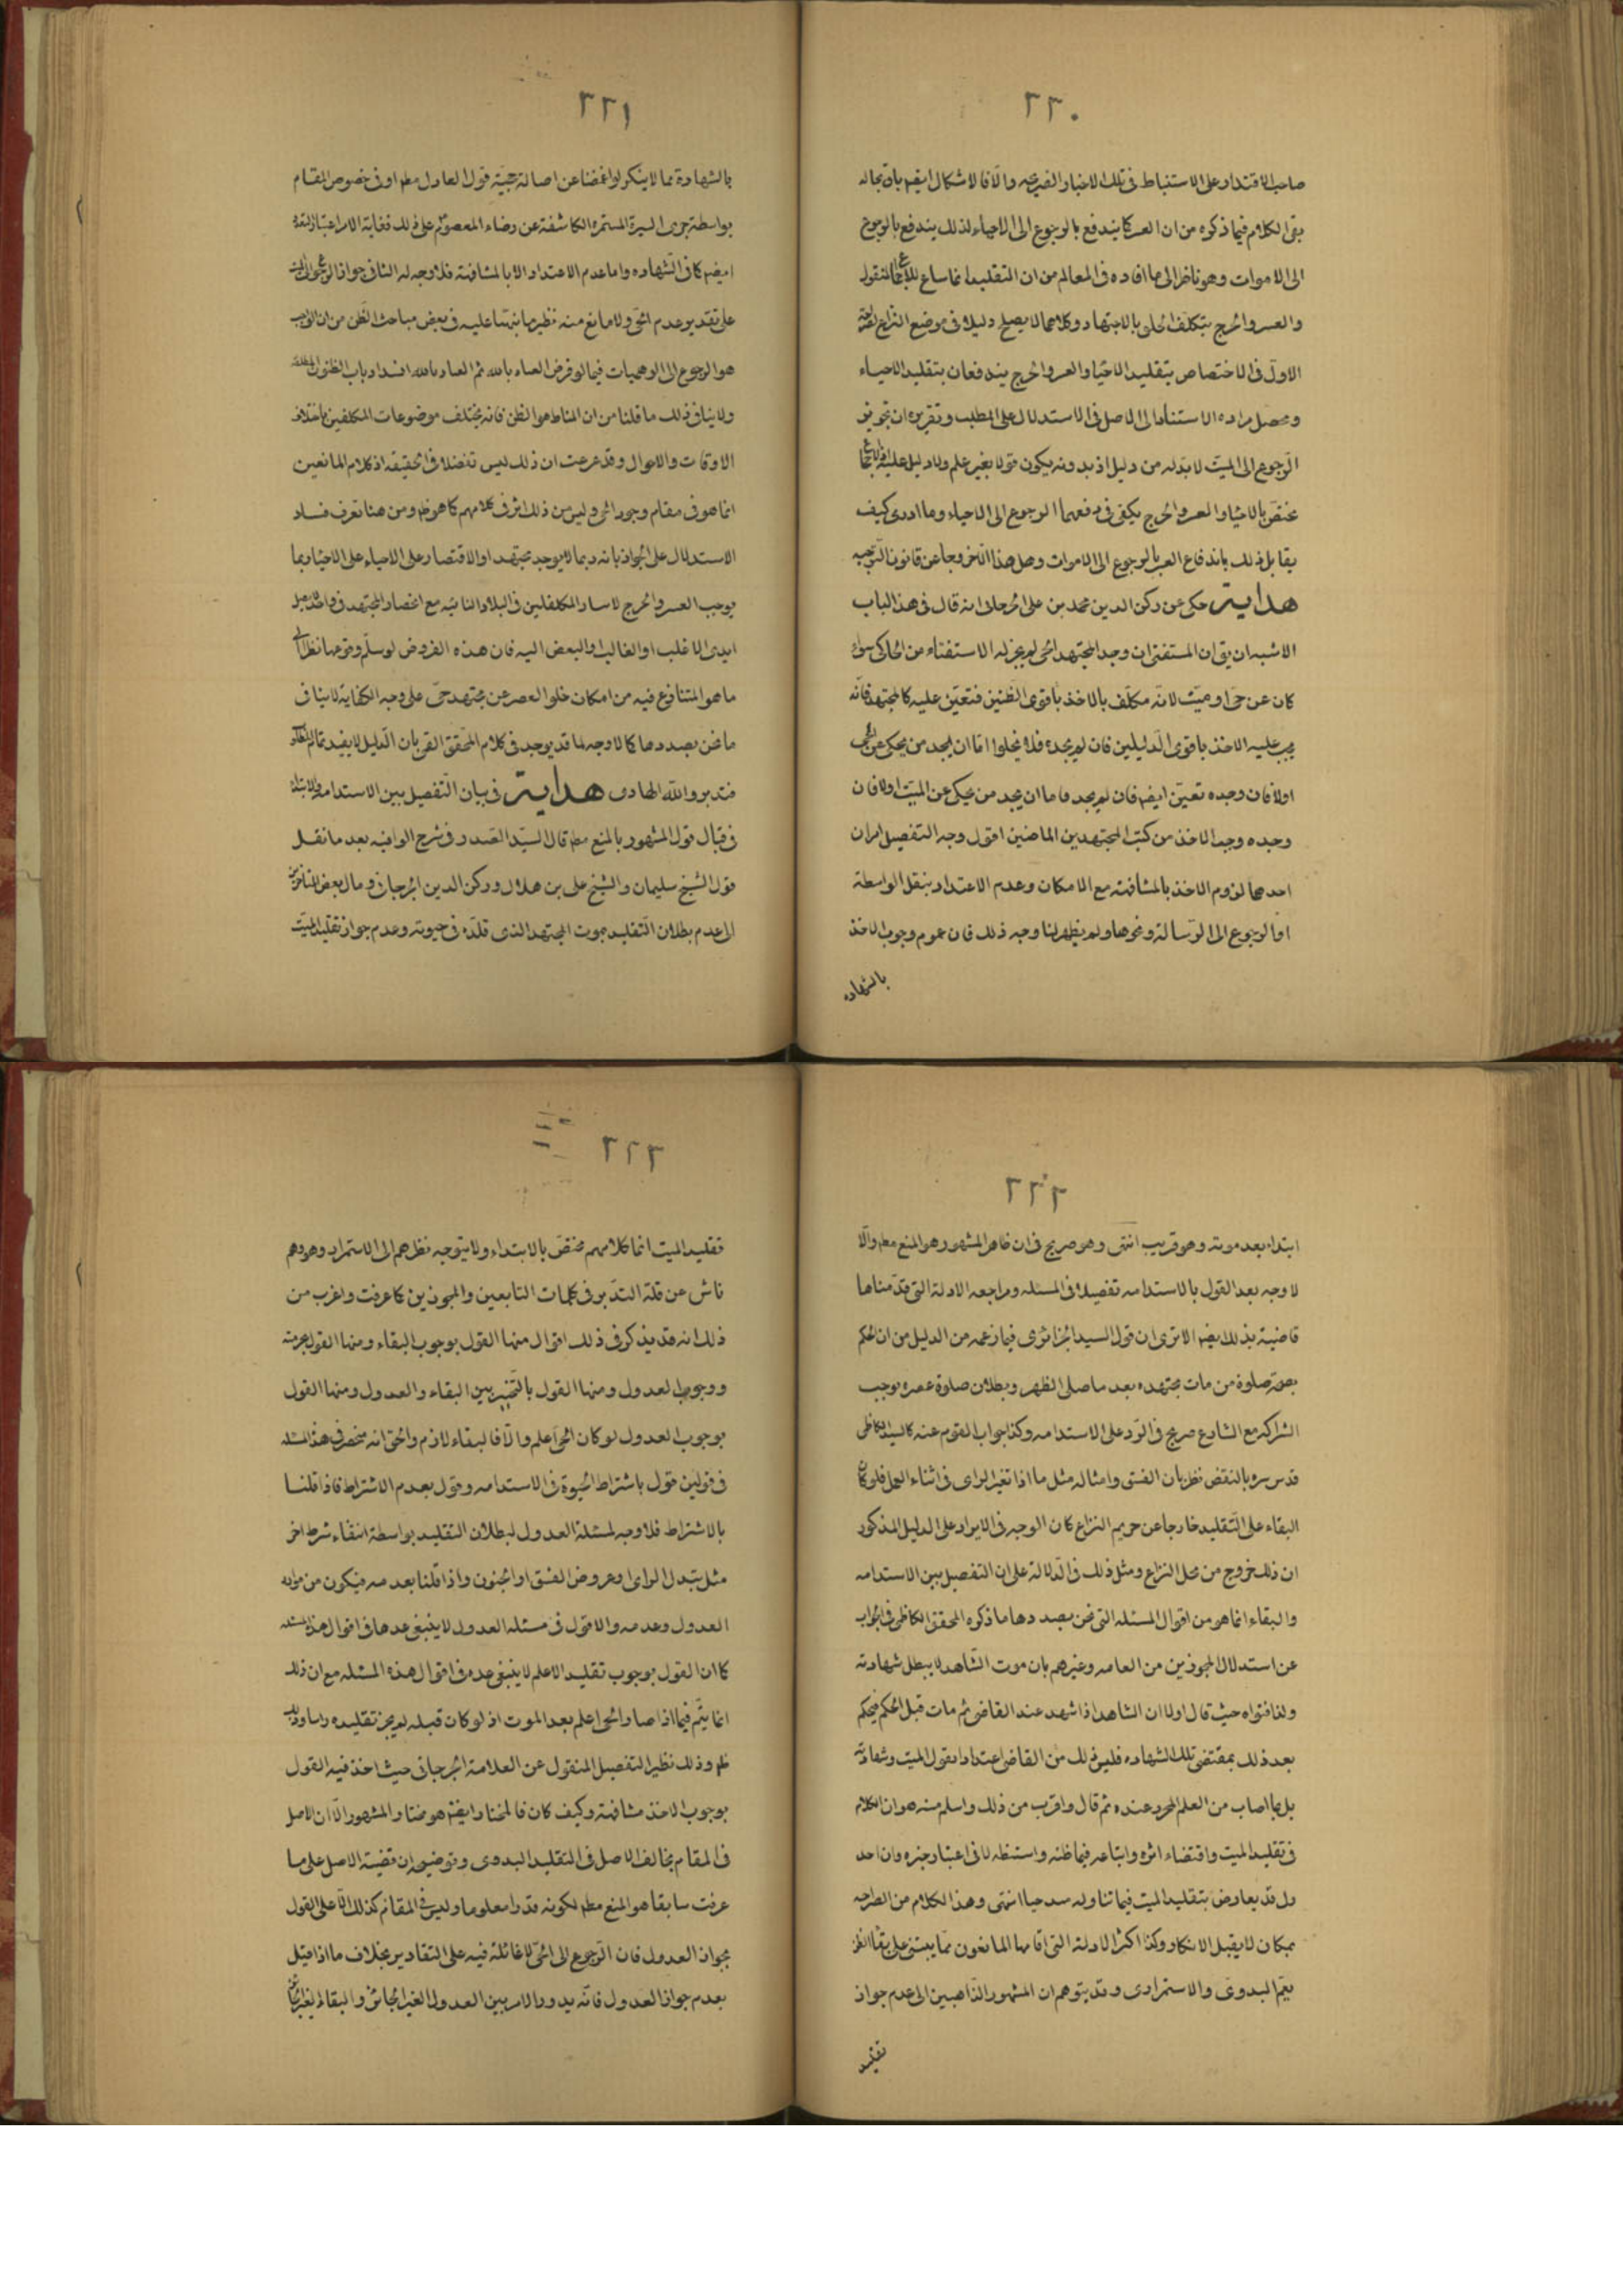 ٢٢٠
صاحب الاقتدار على الاستنباط فى تلك الاخبار والا فالاشكال ايضم بان بحاله
بقى الكلام فيما ذكره من ان العسر كما يندفع بالرجوع الى الاحياء لذلك يندفع بالرجوع
الى الاموات وهو ناظر الى ما افاده فى المعالم من ان التقليد انما ساغ للاجماع المنقول
والعسر والحرج بتكلف الخلق بالاجتهاد وكلاهما لا يصلح دليلا فى موضع النزاع
الاول فى الاختصاص بتقليد الاحياء والعسر والحرج يندفعان بتقليد الاحياء
ومحصل مراده الاستناد الى الاصل فى الاستدلال على المطلب وتقريره ان تجويز
الرجوع الى الميت لا بد له من دليل اذ بدونه يكون قولا بغير علم ولا دليل عليه
مختص بالاحياء والعسر والحرج يكفى فى دفعهما الرجوع الى الاحياء وما ادرى كيف
يقابل ذلك باندفاع العسر بالرجوع الى الاموات وهل هذا الا خروجا عن قانون التوجيه
هداية حكى عن ركن الدين محمد بن على الجرجانى انه قال فى هذا الباب
الاشبه ان يق ان المستفتى ان وجد المجتهد الحى لم يجز له الاستفتاء من الحاكى سواء
كان عن حى او ميت لانه مكلف بالاخذ باقوى الظنين فتعين عليه كالمجتهد فانه
يجب عليه الاخذ باقوى الدليلين فان لم يجده فلا يخلوا اما ان يجد من يحكى عن الحى
اولا فان وجده تعين ايضم فان لم يجد فاما ان يجد من يحكى عن الميت اولا فان
وجده وجب الاخذ من كتب المجتهدين الماضين اقول وجه التفصيل امران
احدهما لزوم الاخذ بالمشافهة مع الامكان وعدم الاعتداد بنقل الواسطة
او الرجوع الى الرسالة ونحوها ولم يظهر لنا وجه ذلك فان عموم وجوب الاخذ
بالشهادة
٢٢١
بالشهادة مما لا ينكر لو اغمضنا عن اصالة حجية قول العادل مطم او فى خصوص المقام
بواسطة جرى السيرة المستمرة الكاشفة عن رضاء المعصوم على ذلك فغاية الامر اعتبار
ايضم كما فى الشهاده واما عدم الاعتداد الا بالمشافهة فلا وجه له الثانى جواز الرجوع الى الميت
على تقدير عدم الحى ولا مانع منه نظير ما نبهنا عليه فى بعض مباحث الظن من ان الواجب
هو الرجوع الى الوهميات فيما لو فرض العياد بالله ثم العياد بالله انسداد باب الظنون المطلقة
ولا ينافى ذلك ما قلنا من ان المناط هو الظن فانه يختلف موضوعات المكلفين باختلاف
الاوقات والاحوال وقد عرفت ان ذلك ليس تفصلا فى الحقيقه اذ كلام المانعين
انما هو فى مقام وجود الحى وليس من ذلك اثر فى كلامهم كما هو ظم ومن هنا تعرف فساد
الاستدلال على الجواز بانه ربما لا يوجد مجتهد او الاقتصار على الاحياء ربما
يوجب العسر والحرج لاسار المكلفين فى البلاد النائيه مع انحصار المجتهد فى واحد
ايدى الاغلب او الغالب او البعض اليه فان هذه الفروض لو سلم وقوعها نظرا الى
ما هو المتنازع فيه من امكان خلو العصر عن مجتهد حى على وجه الكفاية لا ينافى
ما نحن بصدده كما لا وجه لما قد يوجد فى كلام المحقق القمى بان الدليل لا يفيد تمام
فتدبر والله الهادى هداية فى بيان التفصيل بين الاستدامة والابتداء
فى قبال قول المشهور بالمنع مطم قال السيد الصدر فى شرح الوافيه بعد ما نقل
قول الشيخ سليمان والشيخ على بن هلال وركن الدين الجرجانى ومال بعض المتاخرين
الى عدم بطلان التقليد بموت المجتهد الذى قلده فى حيوته وعدم جواز تقليد الميت
٢٢٢
ابتداء بعد موته وهو قريب انتهى وهو صريح فى ان ظاهر المشهور هو المنع مطم والا
لا وجه بعد القول بالاستدامه تفصيلا فى المسئله ومراجعه الادلة التى قدمناها
قاضية بذلك ايضم الا ترى ان قول السيد الجزائرى فيما زعمه من الدليل من ان الحكم
بصحة صلوة من مات مجتهده بعد ما صلى الظهر وبطلان صلوة عصره يوجب
الشراكه مع الشارع صريح فى الرد على الاستدامه وكذا جواب القوم عنه كالسيد الكاظمى
قدس سره بالنقض نظر بان الفسق وامثاله مثل ما اذا تغير الراى فى اثناء العمل فلو كان
البقاء على التقليد خارجا عن حريم النزاع كان الوجه فى الايراد على الدليل المذكور
ان ذلك خروج من محل النزاع ومثل ذلك فى الدلالة على ان التفصيل بين الاستدامه
والبقاء انما هو من اقوال المسئله التى نحن بصددها ما ذكره المحقق الكاظمى فى الجواب
عن استدلال المجوزين من العامه وغيرهم بان موت الشاهد لا يبطل شهادته
ولذا فتواه حيث قال اولا ان الشاهد اذا شهد عند القاضى ثم مات قبل الحكم فيحكم
بعد ذلك بمقتضى تلك الشهاده فليس ذلك من القاضى اعتدادا بقول الميت وشهادته
بل بما اصاب من العلم المجرد عنده ثم قال واقرب من ذلك واسلم منه هو ان الكلام
فى تقليد الميت واقتضاء اثره واتباعه فيما ظنه واستظهر لا فى اعتبار خبره وان احد
ول قد يعارض بتقليد الميت فيما تناوله سد حيا انتهى وهذا الكلام من الصراحه
بمكان لا يقبل الانكار وكذا اكثر الادلة التى اقامها المانعون مما يبتنى على بقاء الظن
يعم البدوى والاستمرارى وقد يتوهم ان المشهور الذاهبين الى عدم جواز
تقليد
٢٢٣
تقليد الميت انما كلامهم مختص بالابتداء ولا يتوجه نظرهم الى الاستمرار وهو وهم
ناش عن قلة التدبر فى كلمات التابعين والمجوزين كما عرفت واغرب من
ذلك انه قد يذكر فى ذلك اقوال منها القول بوجوب البقاء ومنها القول بحرمته
ووجوب العدول ومنها القول بالتخيير بين البقاء والعدول ومنها القول
بوجوب العدول لو كان الحى اعلم والا فالبقاء لازم والحق انه منحصر فى هذا المسئله
فى قولين قول باشتراط الحيوة فى الاستدامه وقول بعدم الاشتراط فاذا قلنا
بالاشتراط فلا وجه لمسئلة العدول لبطلان التقليد بواسطة انتفاء شرط اخر
مثل تبدل الراى او عروض الفسق او الجنون واذا قلنا بعدمه فيكون من موارد
العدول وعدمه والاقول فى مسئله العدول لا ينبغى عدها فى اقوال هذه المسئله
كما ان القول بوجوب تقليد الاعلم لا ينبغى عده فى اقوال هذه المسئله مع ان ذلك
انما يتم فيما اذا صار الحى اعلم بعد الموت اذ لو كان قبله لم يجز تقليده راسا وذلك
ظم وذلك نظير التفصيل المنقول عن العلامة الجرجانى حيث اخذ فيه القول
بوجوب الاخذ مشافهة وكيف كان فالمختار ايضم هو مختار المشهور الا ان الاصل
فى المقام يخالف الاصل فى التقليد البدوى وتوضيحه ان قضية الاصل على ما
عرفت سابقا هو المنع مطم لكونه قدرا معلوما وليس فى المقام كذلك الا على القول
بجواز العدول فان الرجوع الى الحى لا غائلة فيه على التقادير بخلاف ما اذا قيل
بعدم جواز العدول فانه يدور الامر بين العدول الغير الجائز والبقاء الغير الجائز